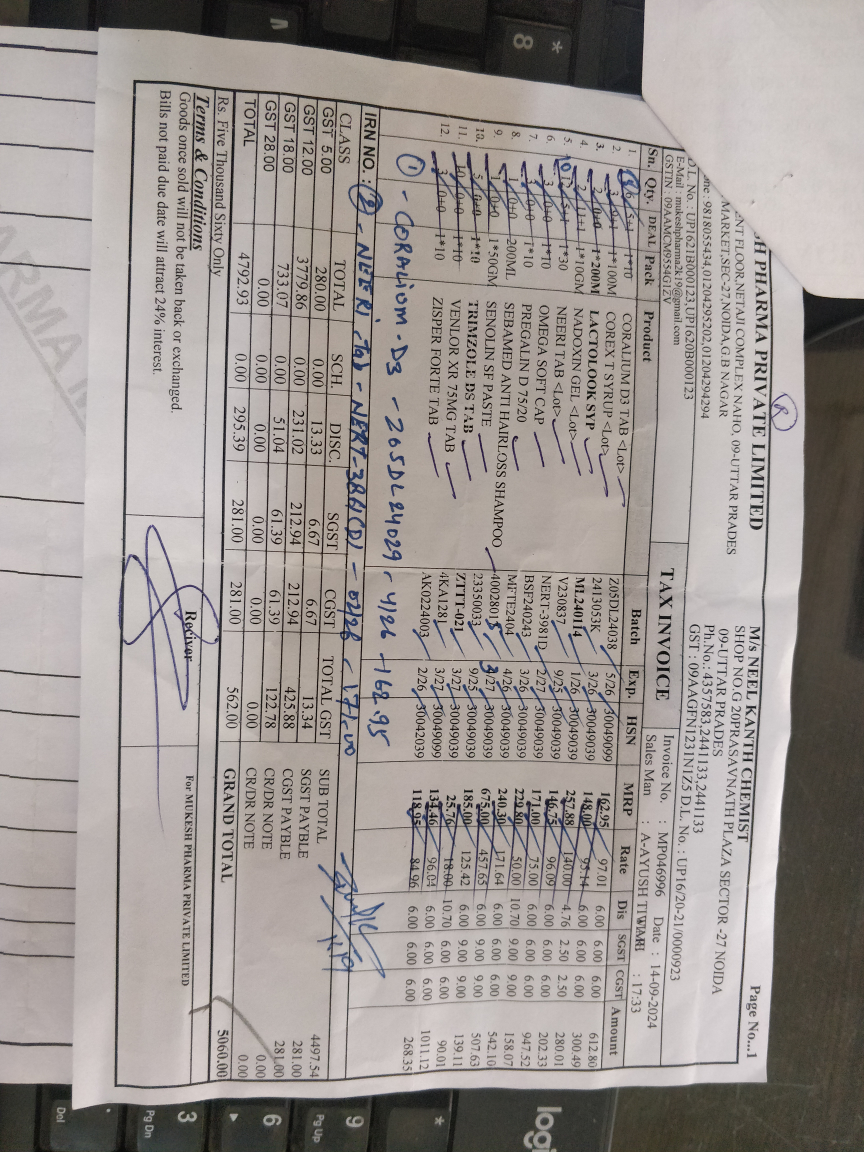 SH PHARMA PRIVATE LIMITED
ENT FLOOR,NETAJI COMPLEX NAHO, 09-UTTAR PRADES
MARKET,SEC-27,NOIDA,G.B NAGAR
one : 9818055434,01204295202,01204294294
D.L. No. : UP1621B000123,UP1620B000123
E-Mail : mukeshpharma2k19@gmail.com
GSTIN : 09AAMCM9554G1ZV
R
TAX INVOICE
Page No...1
M/s NEEL KANTH CHEMIST
SHOP NO.G 20PRASAVNATH PLAZA SECTOR -27 NOIDA
09-UTTAR PRADES
Ph.No.: 4357583,2441133,2441133
GST : 09AAGFN1231N1Z5 D.L. No. : UP16/20-21/0000923
Invoice No. : MP046996 Date : 14-09-2024
Sales Man : A-AYUSH TIWARI : 17:33
Sn. Qty. DEAL Pack Product Batch Exp. HSN MRP Rate Dis SGST CGST Amount
1. 5+1 1*10 CORALIUM D3 TAB <Lot> Z05DL24038 5/26 30049099 162.95 97.01 6.00 6.00 6.00 612.80
2. 1*100M COREX T SYRUP <Lot> 2413053K 3/26 30049039 148.00 95.14 6.00 6.00 6.00 300.49
3. 2 0+0 1*200M LACTOLOOK SYP ML240114 1/26 30049039 257.88 140.00 4.76 2.50 2.50 280.01
4. 2 1*10GM NADOXIN GEL <Lot> V230837 9/25 30049039 146.75 96.09 6.00 6.00 6.00 202.33
5. 10 5+1 1*30 NEERI TAB <Lot> NERT-398(D 2/27 30049039 171.00 75.00 6.00 6.00 6.00 947.52
6. 3 0+0 1*10 OMEGA SOFT CAP BSF240243 3/26 30049039 229.80 50.00 10.70 9.00 9.00 158.07
7. 3 0+0 1*10 PREGALIN D 75/20 MFTE2404 4/26 30049039 240.30 171.64 6.00 6.00 6.00 542.10
8. 1 0+0 200ML SEBAMED ANTI HAIRLOSS SHAMPOO 4002801 3/27 30049039 675.00 457.65 6.00 9.00 9.00 507.63
9. 1 0+0 1*50GM SENOLIN SF PASTE 23350033 9/25 30049039 185.00 125.42 6.00 9.00 9.00 139.11
10. 5 0+0 1*10 TRIMZOLE DS TAB ZTTT-021 3/27 30049039 25.76 18.00 10.70 6.00 6.00 90.01
11. 10 0+0 1*10 VENLOR XR 75MG TAB 4KA1281 3/27 30049099 134.46 96.04 6.00 6.00 6.00 1011.12
12. 3 0+0 1*10 ZISPER FORTE TAB AK0224003 2/26 30042039 118.95 84.96 6.00 6.00 6.00 268.35
① - CORALIUM - D3 - 205DL24029 - 4/26 - 162.95
IRN NO :
② - NEERI Tab - NERT-384(D) - 02/26 - 171.00
CLASS TOTAL SCH. DISC. SGST CGST TOTAL GST
GST 5.00 280.00 0.00 13.33 6.67 6.67 13.34
GST 12.00 3779.86 0.00 231.02 212.94 212.94 425.88
GST 18.00 733.07 0.00 51.04 61.39 61.39 122.78
GST 28.00 0.00 0.00 0.00 0.00 0.00 0.00
TOTAL 4792.93 0.00 295.39 281.00 281.00 562.00
SUB TOTAL 4497.54
SGST PAYBLE 281.00
CGST PAYBLE 281.00
CR/DR NOTE 0.00
CR/DR NOTE 0.00
Rs. Five Thousand Sixty Only
GRAND TOTAL 5060.00
Terms & Conditions
Goods once sold will not be taken back or exchanged.
Bills not paid due date will attract 24% interest.
Reciver
For MUKESH PHARMA PRIVATE LIMITED
ARMA
logi
*
8
9
Pg Up
6
3
Pg Dn
Del